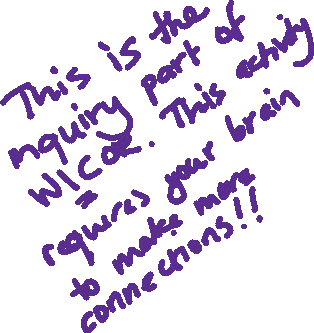 This is the
inquiry part of
WICOR. This activity
requires your brain
to make more
connections!!